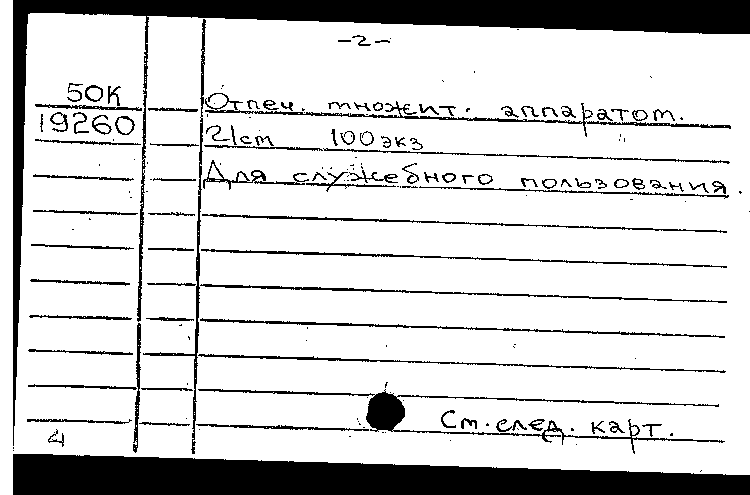 -2-
50К Отпеч. множит. аппаратом.
19260 21cm 100экз
Для служебного пользования.
См. след. карт.